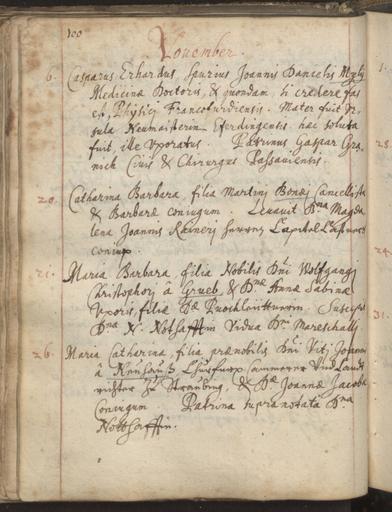 100
November.
6. Casparus Erhardus, spurius Joannis Danielis
Medicinæ Doctoris, & quondam, si credere fas
est, Physici Francofurdiensis. Mater fuit Vr
sula Neumaisterin Eferdingensis. hæc soluta
fuit, ille Vxoratus. Patrinus Gaspar Gra
nich Ciuis & Chirurgus Passauiensis.
20. Catharina Barbara, filia Martini Bonæ, Cancellistæ
& Barbaræ coniugum. Leuauit Dna Magda
lena Joannis
coniux.
21. Maria Barbara, filia Nobilis Dni Wolfgangi
Christophori à Grueb, & Dnæ Annæ Sabinæ
Vxoris, filia Suscepit
Dna N. Nothafftin Vidua Dni Mareschalli
26. Maria Catharina, filia prænobilis Dni Viti Joannis
à Churfürstl. Cammerer Vnd Landt
richter Zu Straubing, & Dæ Joannæ Jacobæ
Coniugum Patrina supra notata Dna
Nothafftin.